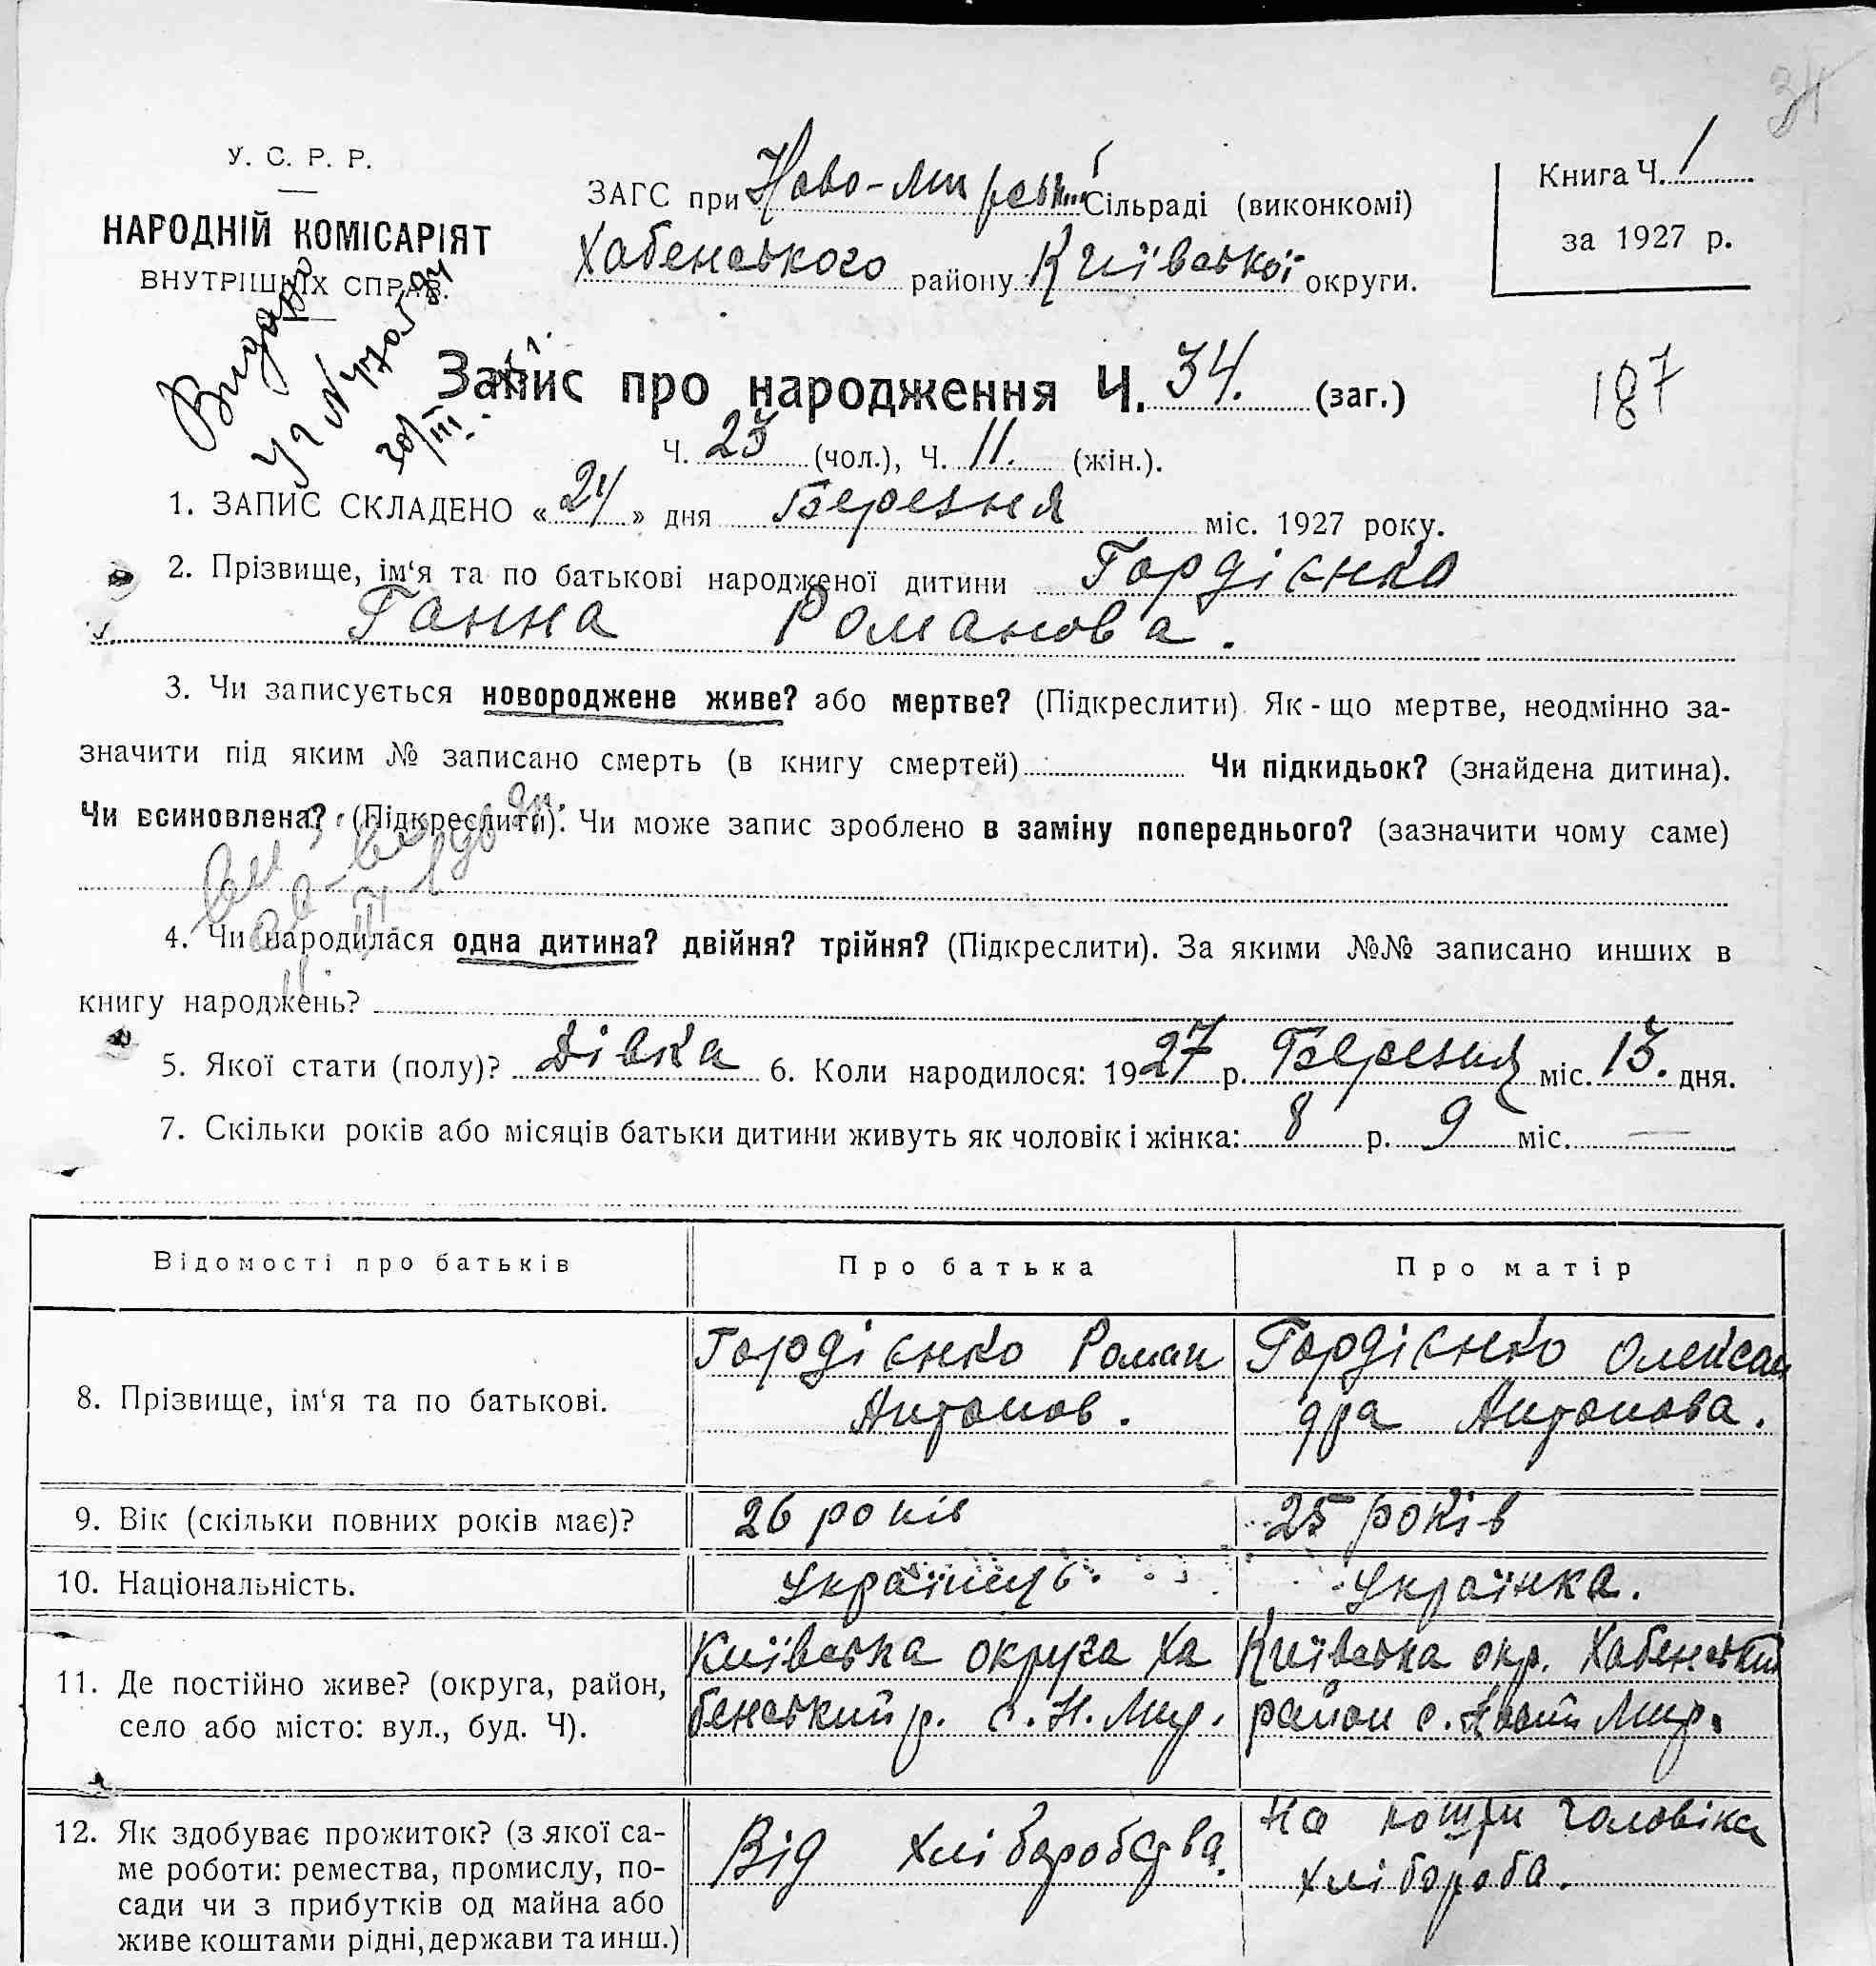 34
У. С. Р. Р.
НАРОДНІЙ КОМІСАРІЯТ
ВНУТРІШНІХ СПРАВ.
ЗАГС при Ново-Мирській Сільраді (виконкомі)
Хабенського району Київської округи.
Книга Ч. 1
за 1927 р.
Видано
20/III
Запис про народження Ч. 34. (заг.)
187
Ч. 23 (чол.), Ч. 11. (жін.).
1. ЗАПИС СКЛАДЕНО «24» дня Березня міс. 1927 року.
2. Прізвище, ім‘я та по батькові народженої дитини Гордієнко
Ганна Романова.
3. Чи записується новороджене живе? або мертве? (Підкреслити). Як-що мертве, неодмінно за-
значити під яким № записано смерть (в книгу смертей) Чи підкидьок? (знайдена дитина).
Чи всиновлена? (Підкреслити). Чи може запис зроблено в заміну попереднього? (зазначити чому саме)
4. Чи народилася одна дитина? двійня? трійня? (Підкреслити). За якими №№ записано инших в
книгу народжень?
5. Якої стати (полу)? Дівка 6. Коли народилося: 1927 р. Березня міс. 13. дня.
7. Скільки років або місяців батьки дитини живуть як чоловік і жінка: 8 р. 9 міс. —
Відомості про батьків Про батька Про матір
8. Прізвище, ім‘я та по батькові.
Гордієнко Роман
Антонов.
Гордієнко Олексан
дра Антонова.
9. Вік (скільки повних років має)? 26 років 25 років
10. Національність. Українець. Українка.
11. Де постійно живе? (округа, район,
село або місто: вул., буд. Ч).
Київська округа Ха
бенський р. с. Н. Мир.
Київська окр. Хабенський
район с. Новий Мир.
12. Як здобуває прожиток? (з якої са-
ме роботи: ремества, промислу, по-
сади чи з прибутків од майна або
живе коштами рідні, держави та инш.)
Від хліборобства.
На кошти чоловіка
хлібороба.